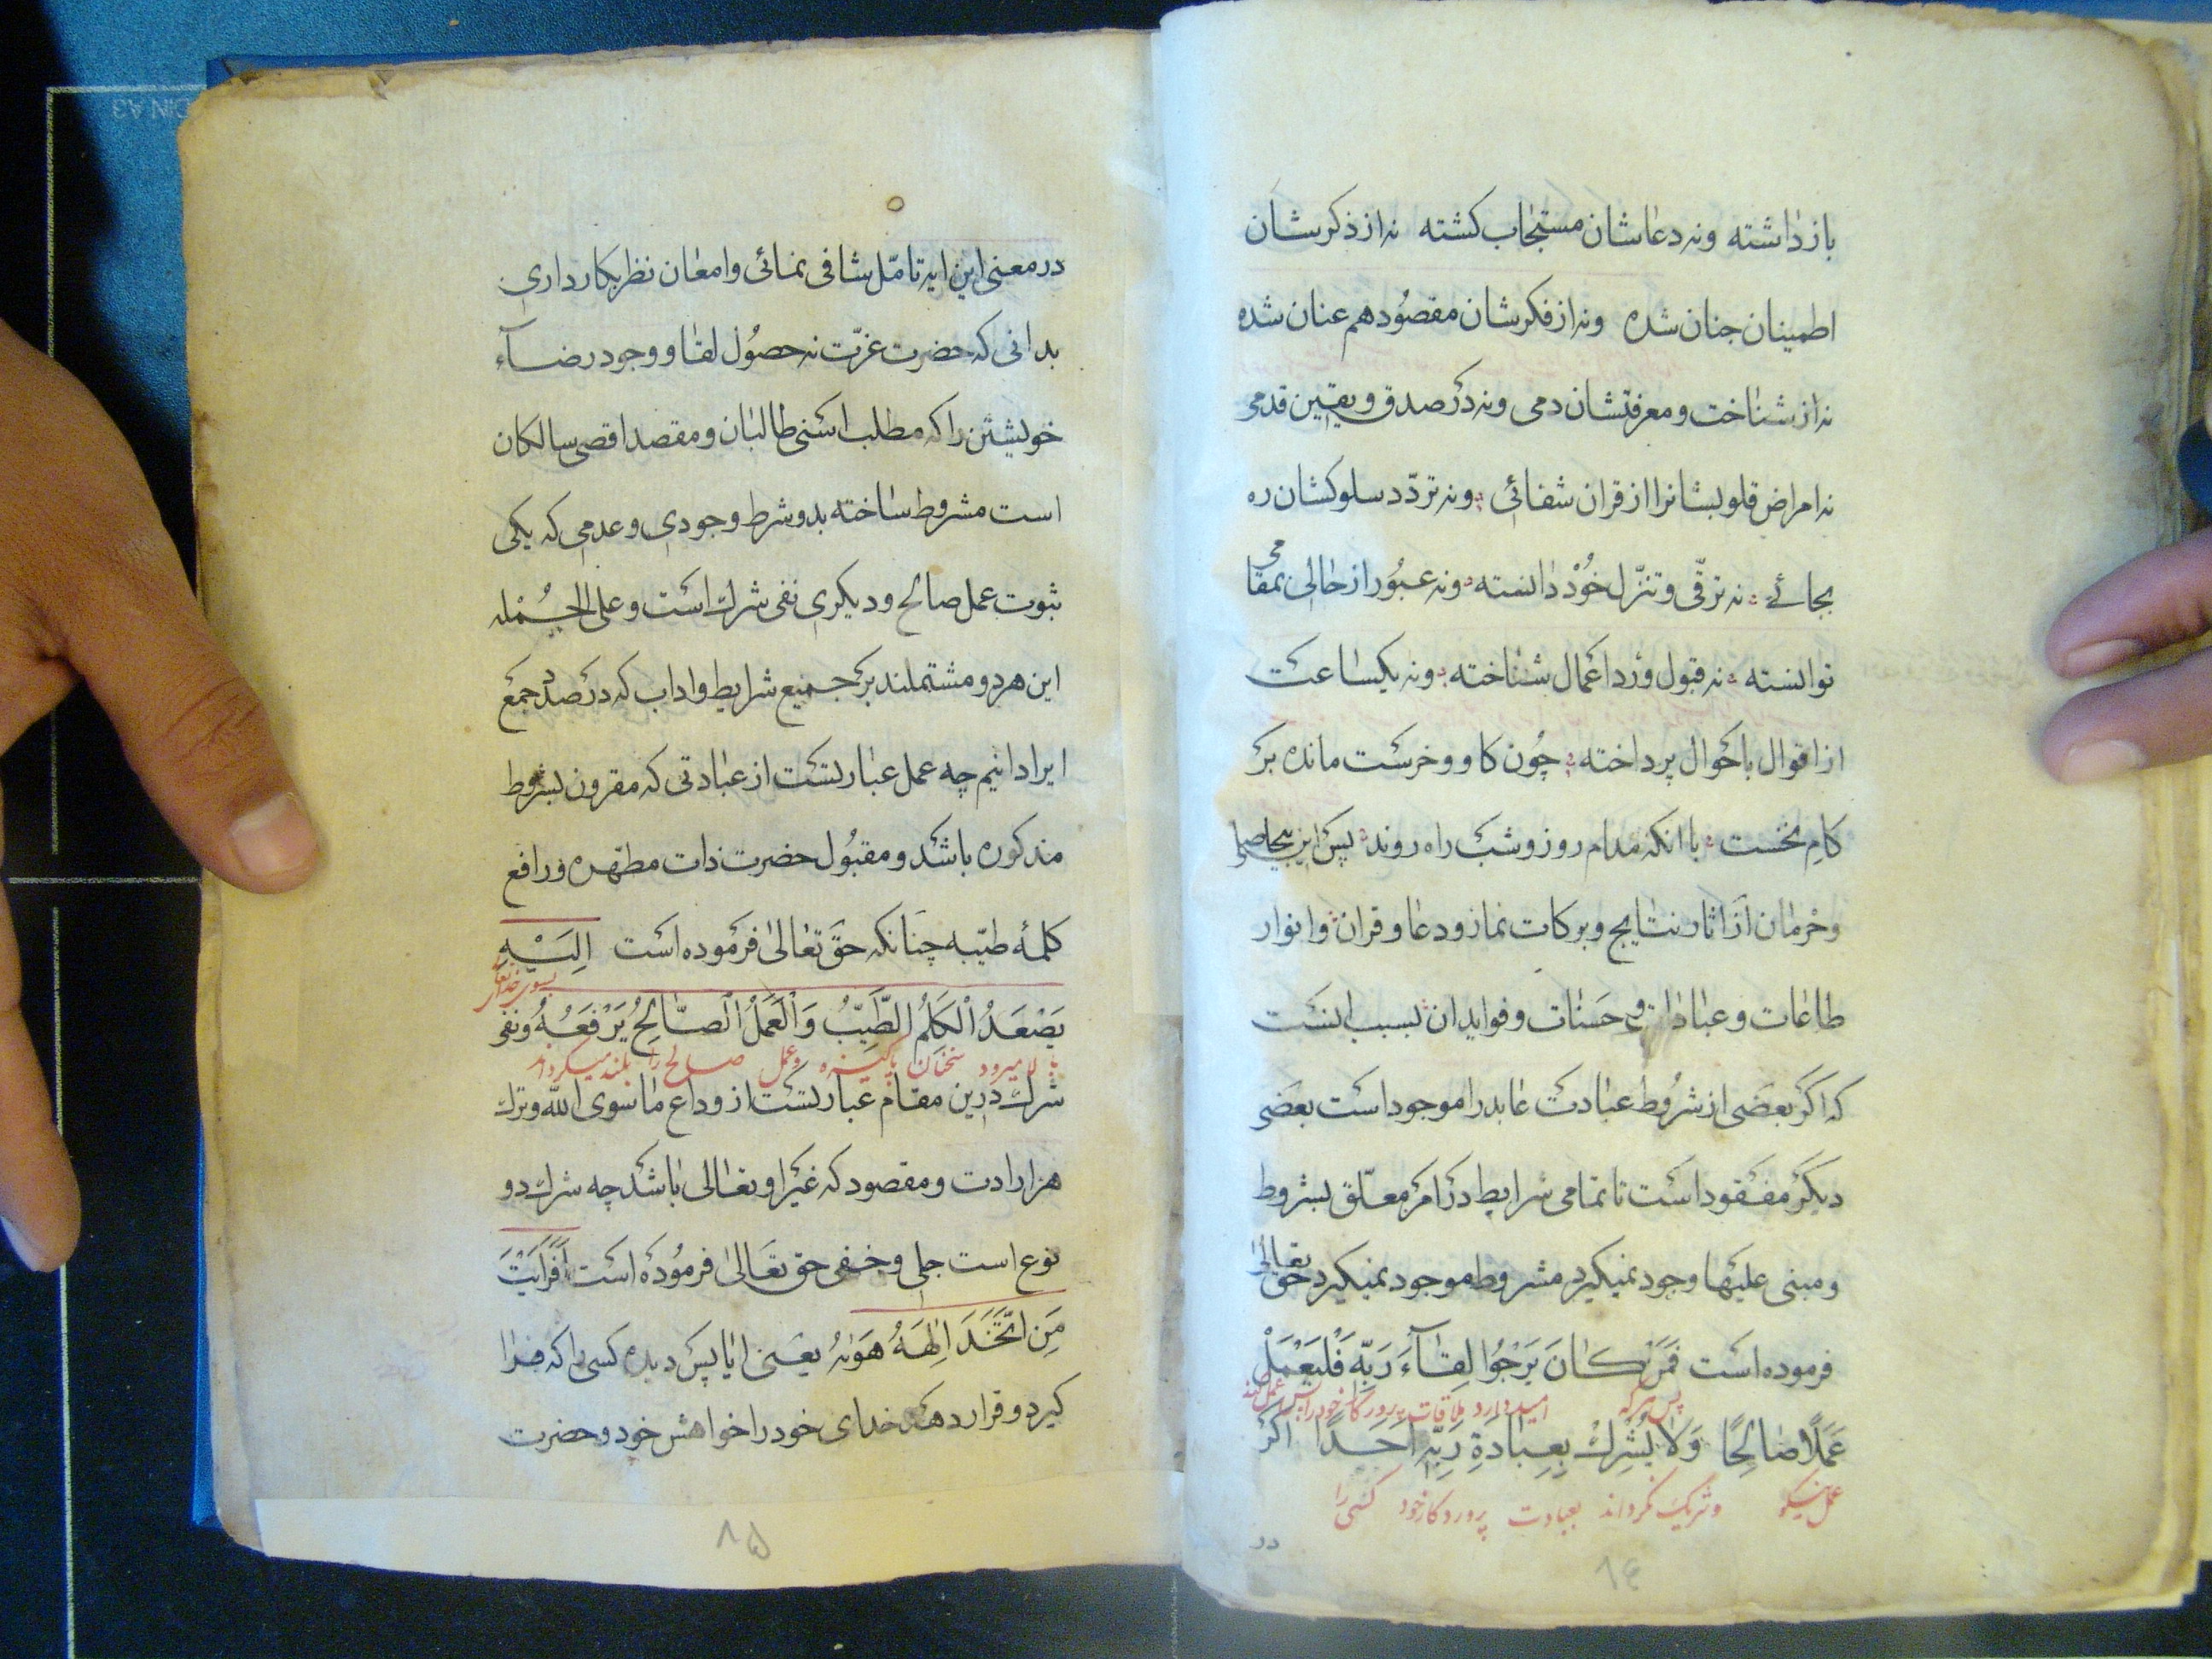 بازداشته ونه دعاشان مستجاب کشته نه از ذکرشان
اطمینان جنان شده ونه از فکرشان مقصود هم عنان شده
نه از شناخت و معرفتشان دمی ونه در صدق و یقین قدمی
نه امراض قلوبشانرا از قران شفائی ونه تردد سلوکشان ره
بجائے نه ترقی وتنزل خود دانسته ونه عبور از حالی بمقامی
توانسته نه قبول ورد اعمال شناخته ونه یکساعت
از اقوال باحوال پرداخته چون کاو وخرست مانده بر
کام نخست با انکه مدام روز وشب راه روند پس این بیحاصلی
وحرمان از اثار نتایج وبرکات نماز ودعا وقران وانوار
طاعات وعبادات وحسنات وفواید ان بسبب اینست
که اکر بعضی از شروط عبادت عابد را موجود است بعضی
دیکر مفقود است تا تمامی شرایط در امر معلق بشروط
ومبنی علیها وجود نمیکیرد مشروط موجود نمیکیرد حق تعالی
فرموده است فَمَنْ کَانَ یَرْجُوا لِقَآءَ رَبِّهِ فَلْیَعْمَلْ
پس هرکه امید دارد ملاقات پرورکار خود را پس عمل کند
عَمَلًا صَالِحًا وَلَا یُشْرِكْ بِعِبَادَةِ رَبِّهِ اَحَدًا اکر
عمل نیکو وشریک نکرداند بعبادت پروردکار خود کسی را
در
۸٤
در معنی این ایه تامّل شافی نمائی وامعان نظر بکار داری
بدانی که حضرت عزّت نه حصول لقا ووجود رضآء
خویشتن را که مطلب اسنی طالبان ومقصد اقصی سالکان
است مشروط ساخته بدو شرط وجودی وعدمی که یکی
ثبوت عمل صالح ودیکری نفی شرك است وعلی الجُمْله
این هر دو مشتملند بر جمیع شرایط واداب که در صدد جمع
ایراد انیم چه عمل عبارتست از عبادتی که مقرون بشروط
مذکوره باشد ومقبول حضرت ذات مطهره ورافع
کلمهٔ طیّبه چنانکه حق تعالی فرموده است اِلَیْهِ
بسوی خدایتعالی
یَصْعَدُ الْکَلِمُ الطَّیِّبُ وَالْعَمَلُ الصَّالِحُ یَرْفَعُهُ ونفی
بالا میرود سخنان پاکیزه وعمل صالح را بلند میکرداند
شرك درین مقام عبارتست از وداع ماسوی الله وترك
هر ارادت ومقصود که غیر او تعالی باشد چه شرك دو
نوع است جلی وخفی حق تعالی فرموده است اَفَرَاَیْتَ
مَنِ اتَّخَذَ اِلٰهَهُ هَوٰیهُ یعنی ایا پس دیده کسی را که فرا
کیرد وقرار دهد خدای خود را خواهش خود وحضرت
۸۵